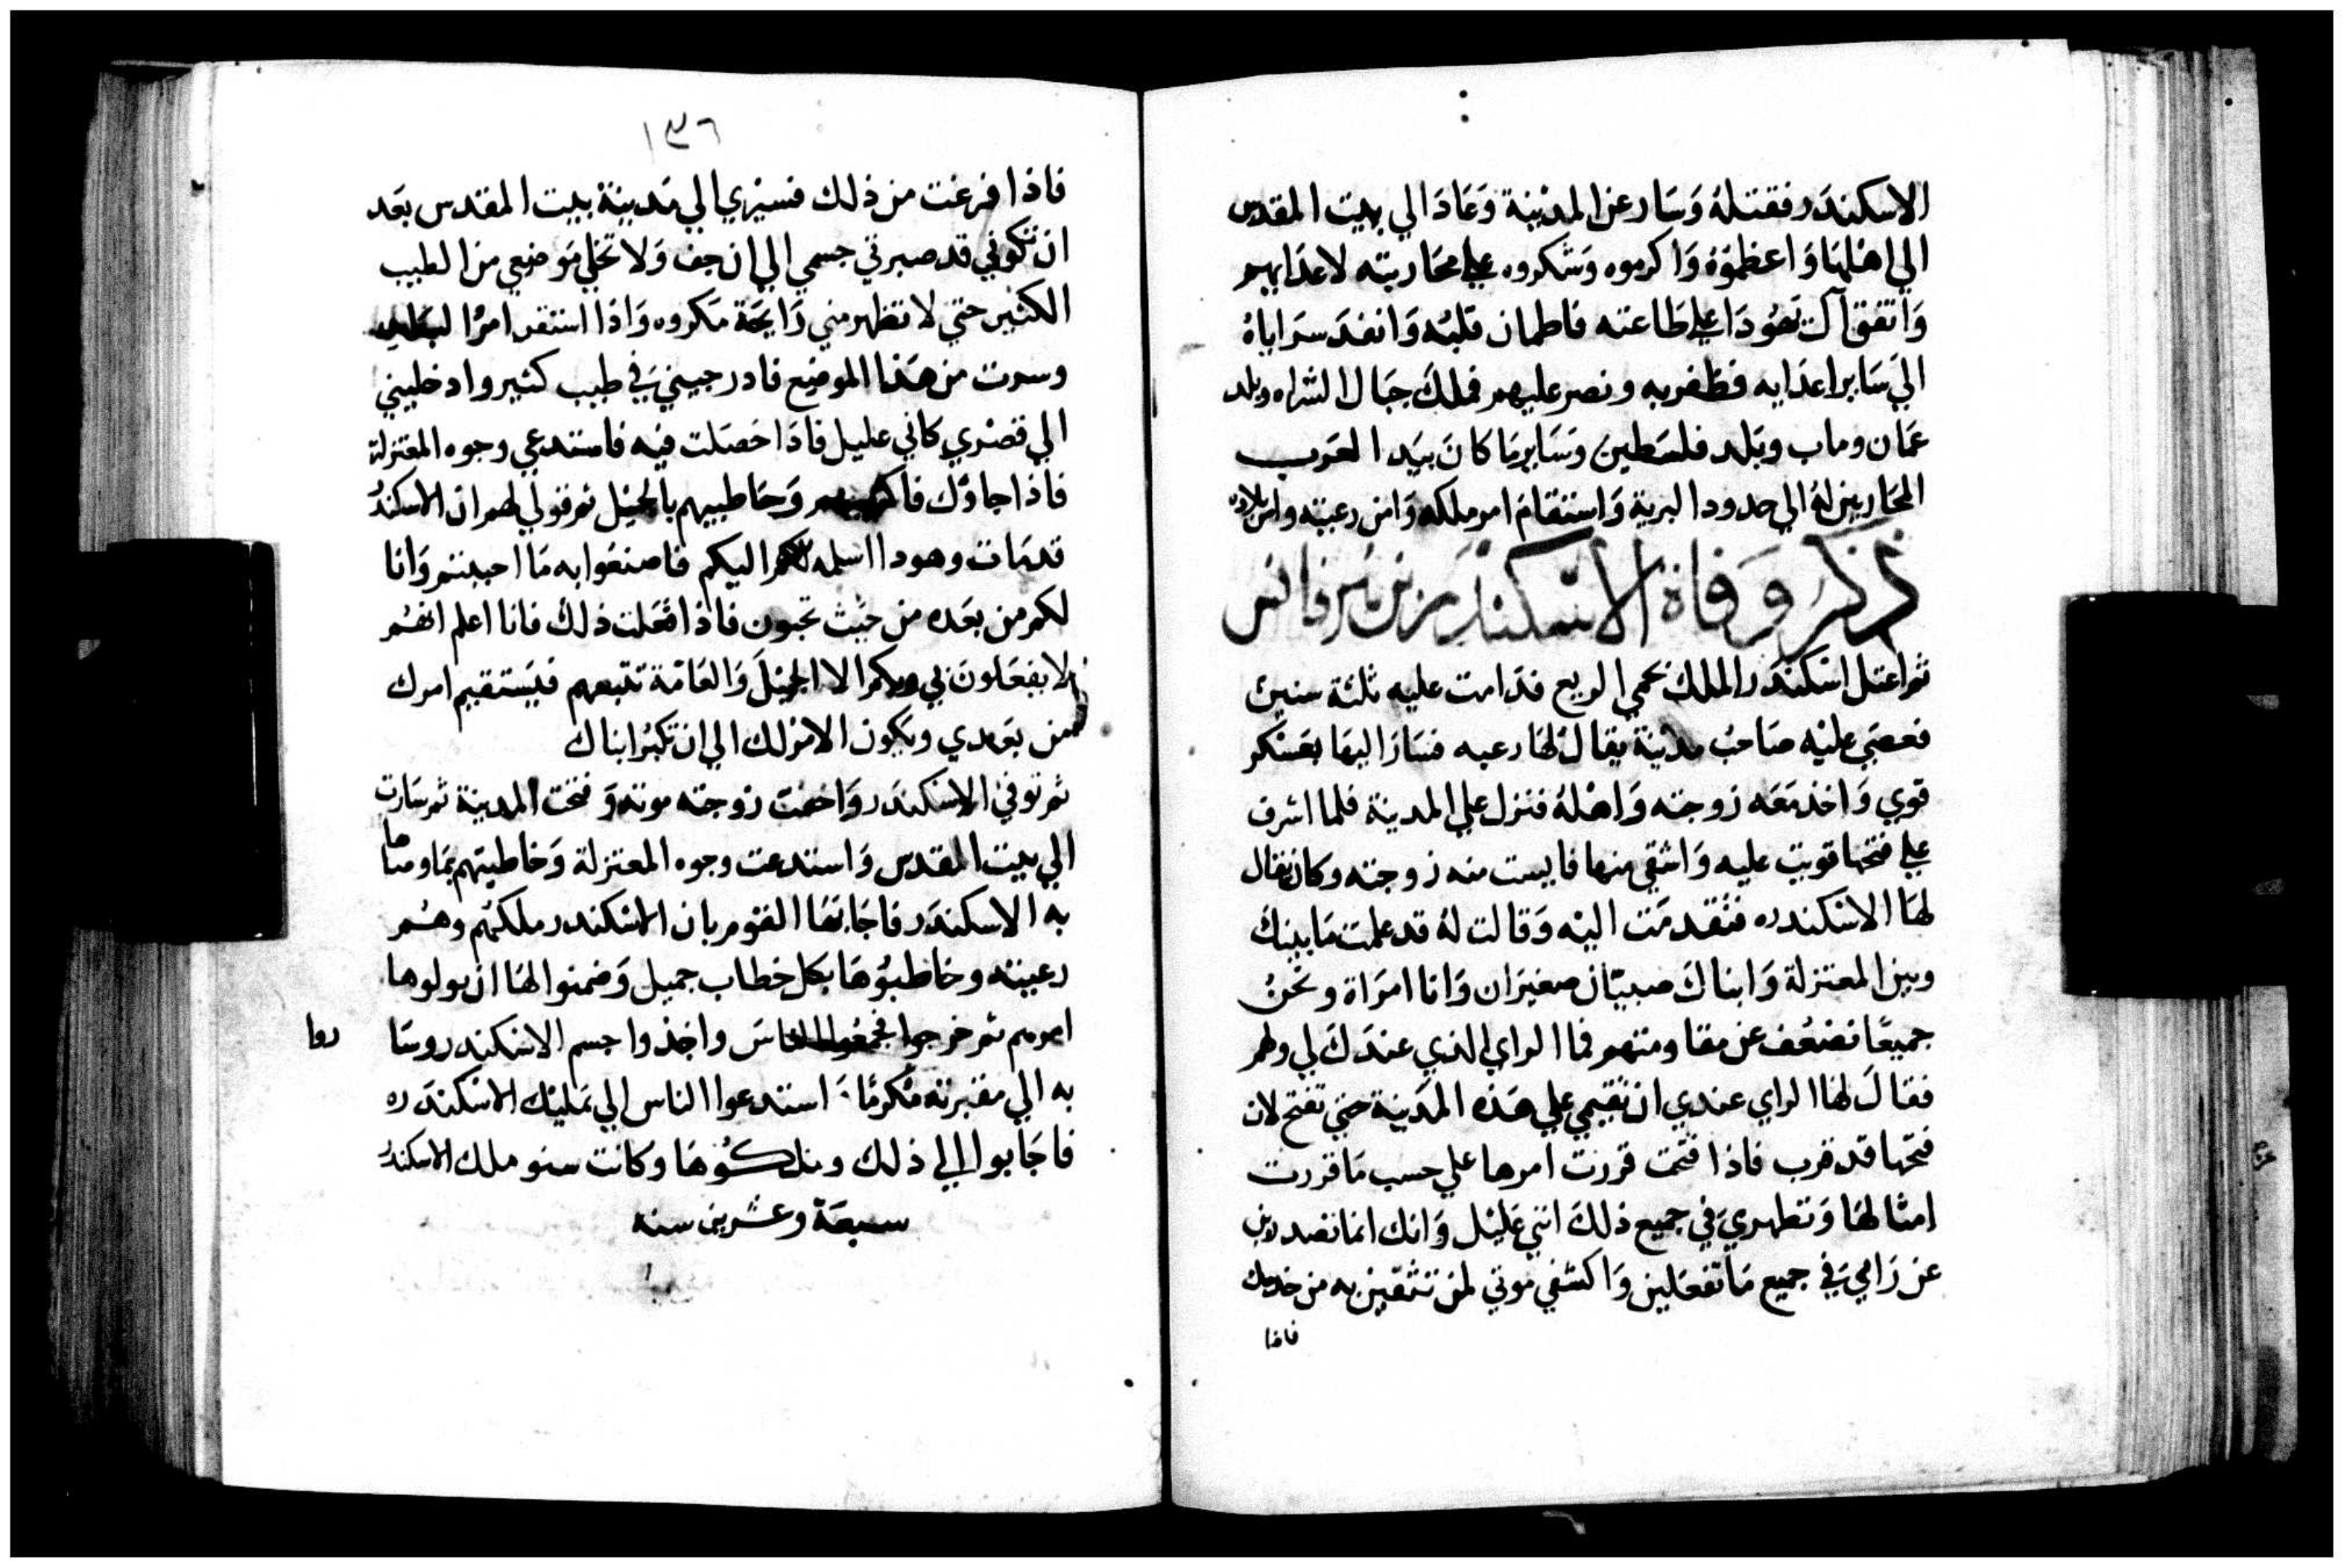 الاسكندر فقتله وسار عن المدينة وعاد الي بيت المقدس
الي اهلها واعظموه واكرموه وشكروه علي محاربته لاعدايهم
واتفق آل يهودا علي طاعته فاطمان قلبه وانفد سراياه
الي ساير اعدايه فظفر به ونصر عليهم فملك جبال الشراه وبلد
عمان وماب وبلد فلسطين وساير ما كان بيد العرب
المحاربين له الي حدود البرية واستقام امر ملكه وامن رعيته وامن بلاده
ذكر وفاة الاسكندر بن هرقانس
ثم اعتل اسكندر الملك بحمي الربع فدامت عليه ثلثة سنين
فعصي عليه صاحب مدينة يقال لها رعبه فسار اليها بعسكر
قوي واخذ معه زوجته واهله فنزل علي المدينة فلما اشرف
علي فتحها قويت عليه واشفي منها فايست منه زوجته وكان يقال
لها الاسكندره فتقدمت اليه وقالت له قد علمت ما بينك
وبين المعتزلة وابناك صبيان صغيران وانا امراة ونحن
جميعا نضعف عن مقاومتهم فما الراي الذي عندك لي ولهم
فقال لها الراي عندي ان تقيمي علي هذه المدينة حتي تفتح لان
فتحها قد قرب فاذا فتحت قررت امرها علي حسب ما قررت
امثالها وتظهري في جميع ذلك انني عليل وانك انما تصدرين
عن رايي في جميع ما تفعلين واكشفي موتي لمن تثقين به من خدمك
فاذا
١٣٦
فاذا فرغت من ذلك فسيري الي مدينة بيت المقدس بعد
ان تكوني قد صبرتي جسمي الي ان جف ولا تخلي موضعي من الطيب
الكثير حتي لا تظهر مني رايحة مكروه واذا استقر امر
وسرت من هذا الموضع فادرجيني في طيب كثير وادخليني
الي قصري كاني عليل فاذا حصلت فيه فاستدعي وجوه المعتزلة
فاذا جاوك وخاطبيهم بالجميل ثم قولي لهم ان الاسكندر
قد مات وهودا اسلمه لكم اليكم فاصنعوا به ما احببتم وانا
لكم من بعده من حيث تحبون فاذا فعلت ذلك فانا اعلم انهم
لا يفعلون بي وبكم الا الجميل والعامة تتبعهم فيستقيم امرك
من بعدي ويكون الامر لك الي ان تكبر ابناك
ثم توفي الاسكندر واخفت زوجته موته وفتحت المدينة ثم سارت
الي بيت المقدس واستدعت وجوه المعتزلة وخاطبتهم بما وصاها
به الاسكندر فاجابها القوم بان الاسكندر ملكهم وهم
رعيته وخاطبوها بكل خطاب جميل وضمنوا لها ان يولوها
امرهم ثم خرجوا فجمعوا الناس واخذوا جسم الاسكندر وسا
روا
به الي مقبرته مكرما واستدعوا الناس الي تمليك الاسكندره
فاجابوا الي ذلك وملكوها وكانت سنو ملك الاسكندر
سبعة وعشرين سنه